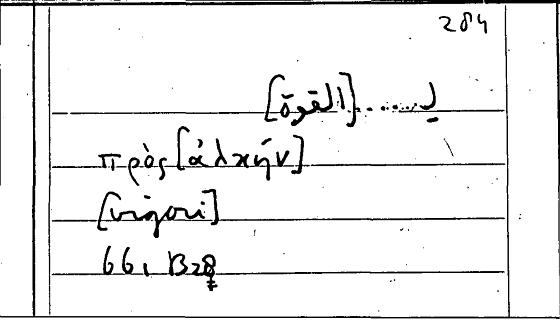 284
لـ......[القوة]
πρὸς [ἀλκὴν]
[vigori]
66, B28